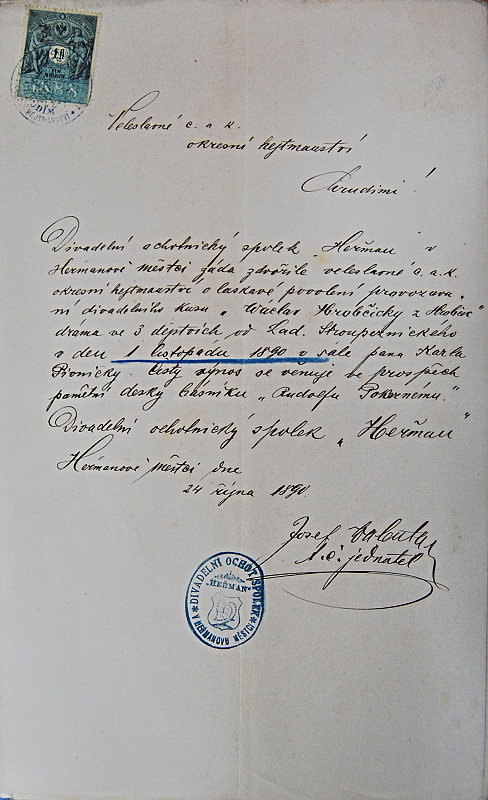 Veleslavné c. a k.
okresní hejtmanství
Chrudimi!
Divadelní ochotnický spolek „Heřman" v
Heřmanově městci žádá zdvořile veleslavné c. a. k.
okresní hejtmanství o laskavé povolení provozová-
ní divadelního kusu „Václav Hrobčický z Hrobčic"
dráma ve 3 dějstvích od Lad. Stroupeznického
v den 1 listopadu 1890 v sále pana Karla
Čistý výnos se věnuje ve prospěch
pamětní desky básníku „Rudolfu Pokornému."
Divadelní ochotnický spolek „Heřman"
Heřmanově městci dne
24 října 1890
Josef
t. č. jednatel
DIVADELNÍ OCHOT. SPOLEK
„HEŘMAN"
V HEŘMANOVU MĚSTCI